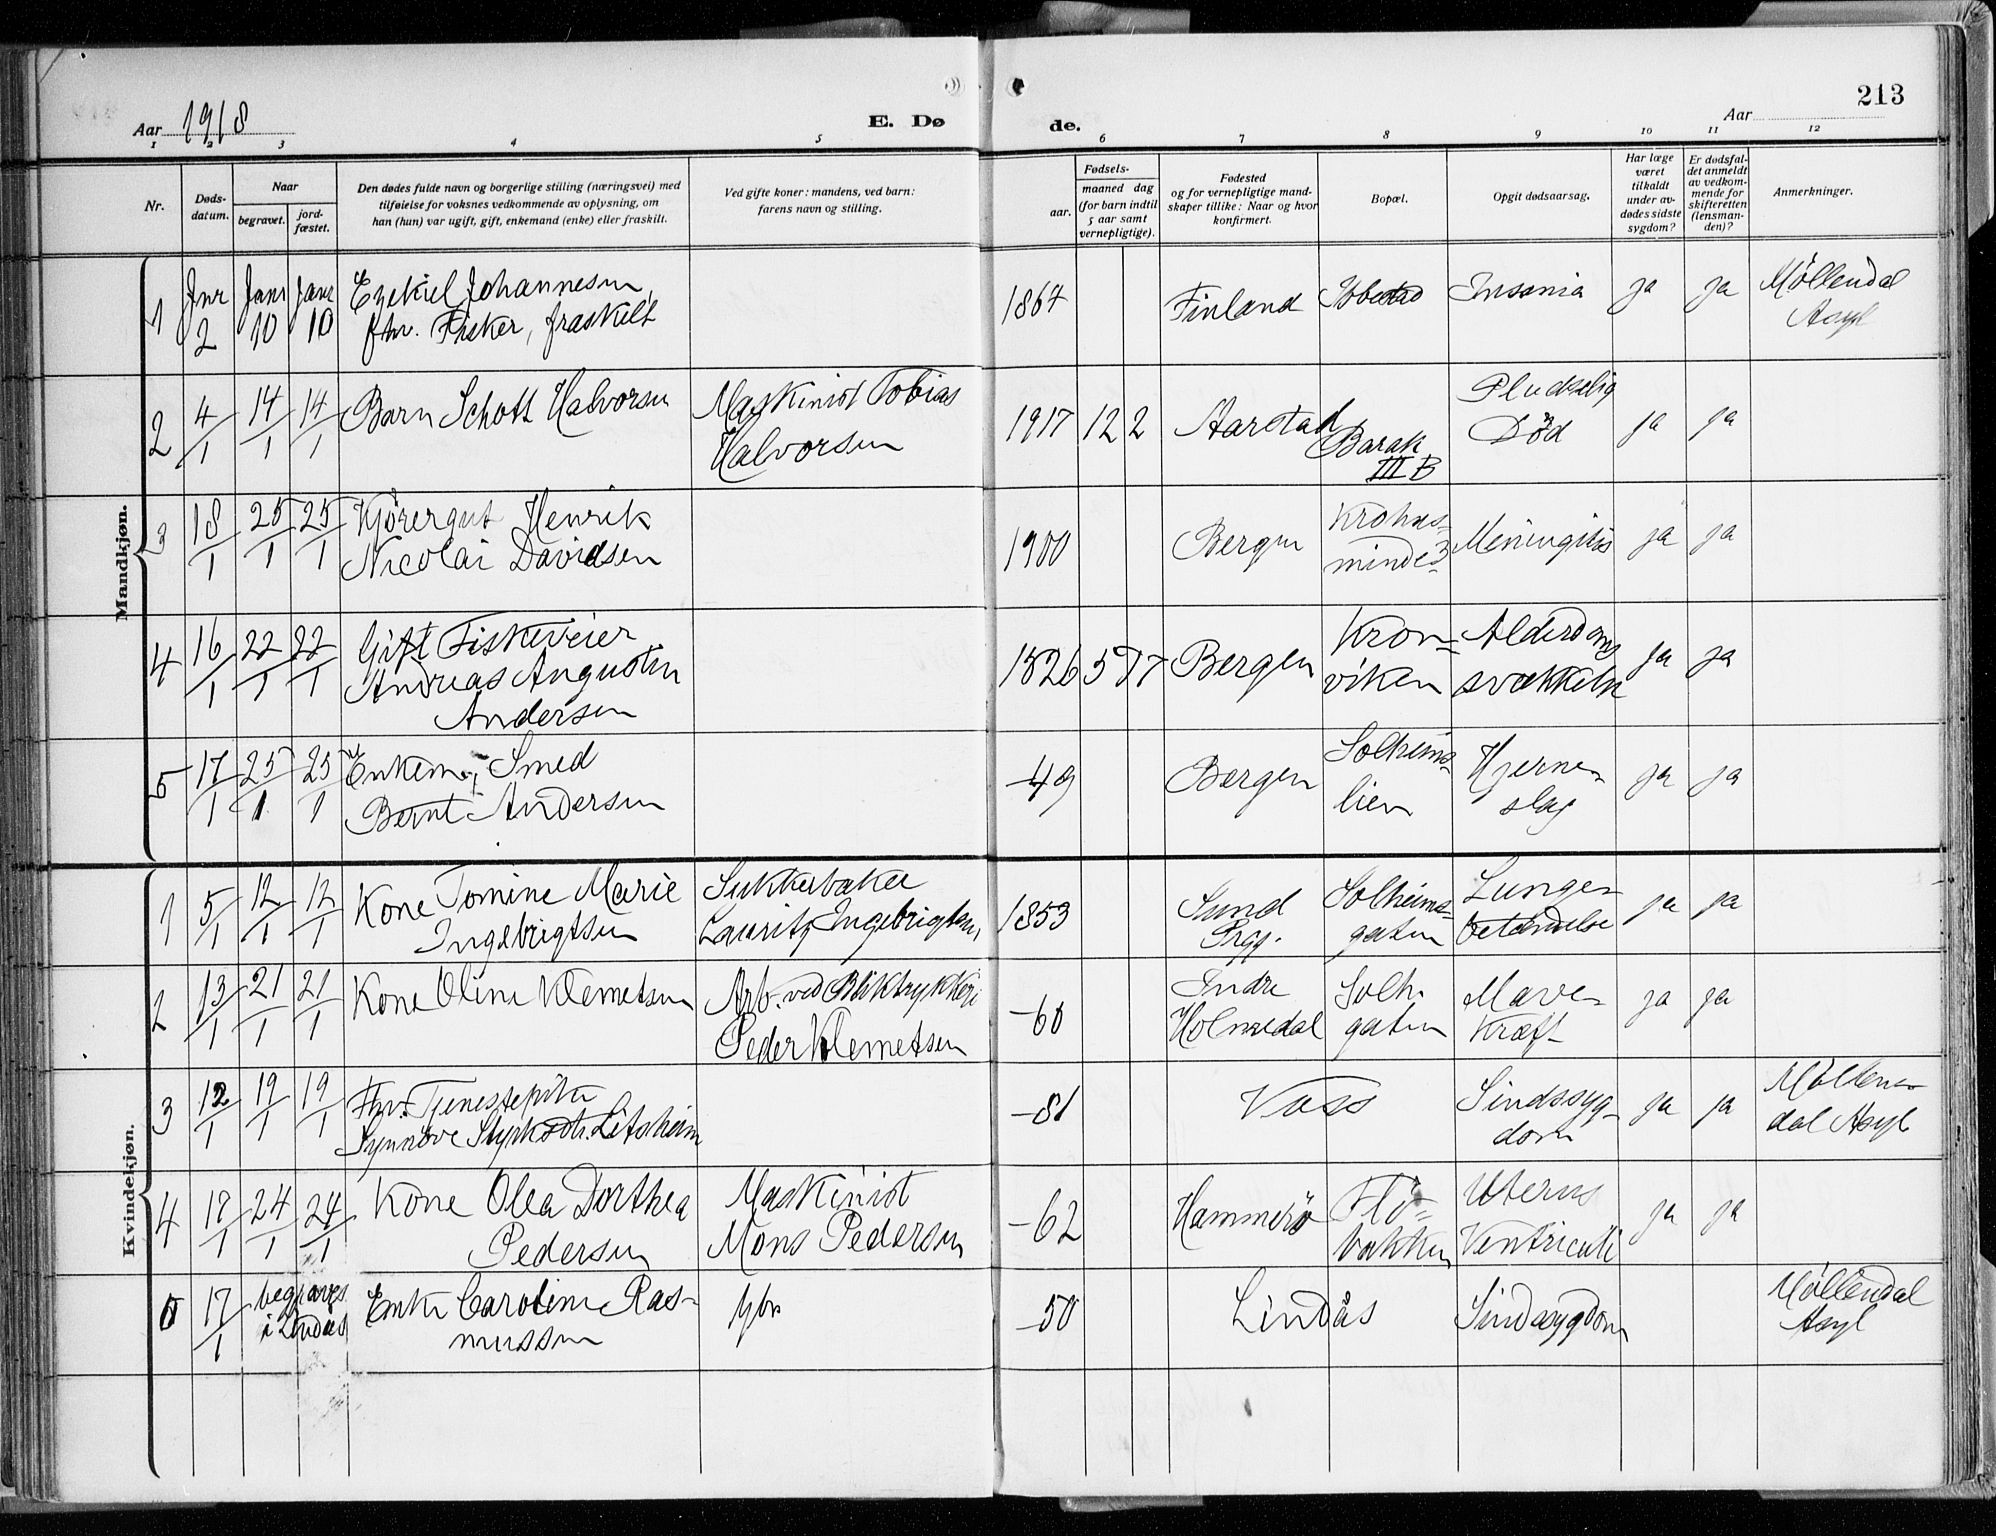 213
Aar 1918
E. Dø
de.
Aar
1 2 3 4 5 6 7 8 9 10 11 12
Nr.
Dødsdatum.
Naar
begravet.
jordfæstet.
Den dødes fulde navn og borgerlige stilling (næringsvei) med
tilføielse for voksnes vedkommende av oplysning, om
han (hun) var ugift, gift, enkemand (enke) eller fraskilt.
Ved gifte koner: mandens, ved barn:
farens navn og stilling.
Fødsels-
aar.
maaned dag
(for barn indtil
5 aar samt
vernepligtige).
Fødested
og for vernepligtige mand-
skaper tillike: Naar og hvor
konfirmert.
Bopæl.
Opgit dødsaarsag.
Har læge
været
tilkaldt
under av-
dødes sidste
sygdom?
Er dødsfal-
det anmeldt
av vedkom-
mende for
skifteretten
(lensman-
den)?
Anmerkninger.
Mandkjøn.
1 Jnr 2 Janr 10 Janr 10 Ezekiel Johannesen,
fhv. Fisker, fraskilt
1864 Finland Insania ja ja Møllendal
Asyl
2 4/1 14/1 14/1 Barn Schott Halvorsen Maskinist Tobias
Halvorsen
1917 12 2 Aarstad Barak
III B
Pludselig
Död ja ja
3 18/1 25/1 25/1 Kjörergut Henrik
Nicolai Davidsen
1900 Bergen Krohns-
minde 3
Meningitis ja ja
4 16/1 22/1 22/1 Gift Fiskeveier
Andreas Augustin
Andersen
1826 5 17 Bergen Kron-
viken
Alderdoms
svækkelse ja ja
5 17/1 25/1 25/1 Enkem., Smed
Bernt Andersen
-49 Bergen Solheims-
lien
Hjerne-
slag ja ja
Kvindekjøn.
1 5/1 12/1 12/1 Kone Tomine Marie
Ingebrigtsen
Sukkerbaker
Lauritz Ingebrigtsen,
1853 Sund
Prgj.
Solheims-
gaten
Lunge-
betændelse ja ja
2 13/1 21/1 21/1 Kone Oline Klemetsen Arb. ved Bliktrykkeri
Peder Klemetsen
-60 Indre
Holmedal
Solh.
gaten
Mave-
kræft ja ja
3 12/1 19/1 19/1 Fhv. Tjenestepike
Synnöve Styrksdtr. Litsheim
-81 Voss Sindssyg-
dom ja ja Möllen-
dal Asyl
4 17/1 24/1 24/1 Kone Olea Dorthea
Pedersen
Maskinist
Mons Pedersen
-62 Hammerö Flö-
bakken
Uterus
Ventriculi ja ja
5 17/1 begraves
i Lindås
Enke Caroline Ras-
mussen
-50 Lindås Sindssygdom Møllendal
Asyl